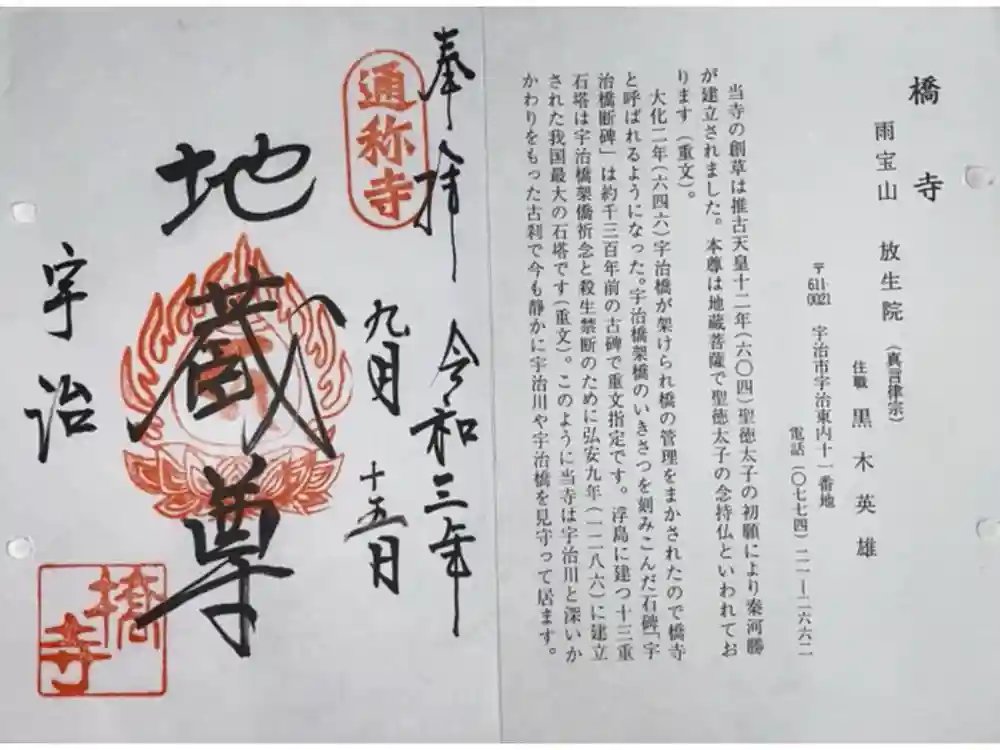 橋寺
雨宝山 放生院(真言律宗)
住職 黒木英雄
〒611-0021 宇治市宇治東内十一番地
電話(〇七七四)二一―二六六二
当寺の創草は推古天皇十二年(六〇四)聖徳太子の初願により秦河勝
が建立されました。本尊は地蔵菩薩で聖徳太子の念持仏といわれてお
ります(重文)。
大化二年(六四六)宇治橋が架けられ橋の管理をまかされたので橋寺
と呼ばれるようになった。宇治橋架橋のいきさつを刻みこんだ石碑「宇
治橋断碑」は約千三百年前の古碑で重文指定です。浮島に建つ十三重
石塔は宇治橋架僑祈念と殺生禁断のために弘安九年(一二八六)に建立
された我国最大の石塔です(重文)。このように当寺は宇治川と深いか
かわりをもった古刹で今も静かに宇治川や宇治橋を見守って居ます。
奉拝 令和三年
九月十五日
通称寺
地蔵尊
宇治
橋寺